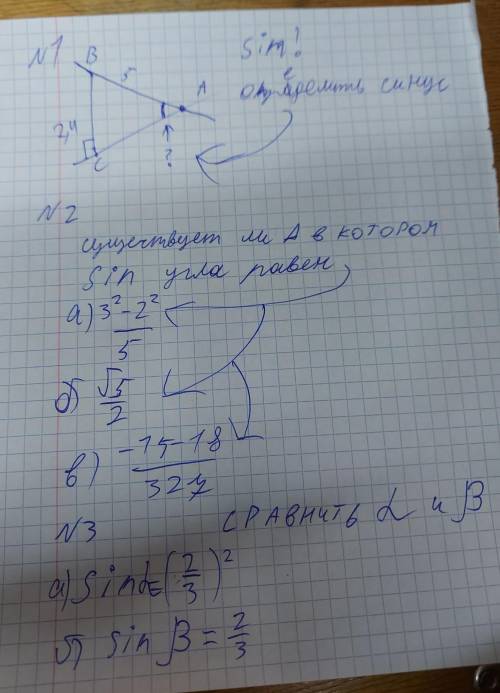 N1
B
5
A
2,4
C
?
Sin!
определить синус
N2
существует ли Δ в котором
Sin угла равен
а) 3²-2²
5
б) √5
2
в) -15-18
327
N3 СРАВНИТЬ α и β
а) Sin α=(2/3)²
б) sin β = 2/3